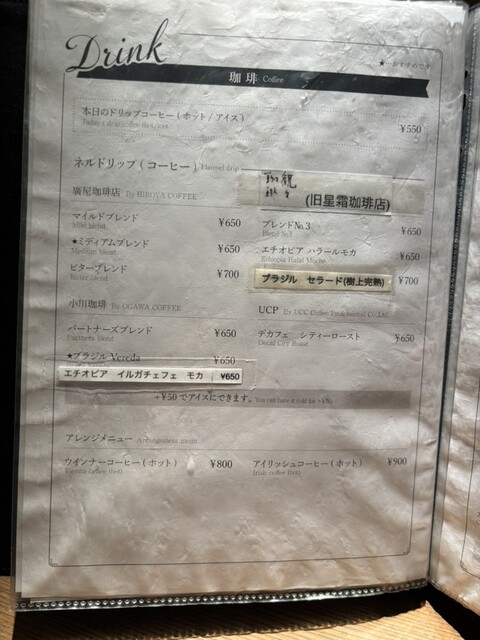 Drink
★…おすすめです
珈琲 Coffee
本日のドリップコーヒー(ホット/アイス)
Today's drip coffee (hot/ice)
¥550
ネルドリップ(コーヒー) Flannel drip
廣屋珈琲店 By HIROYA COFFEE
マイルドブレンド ¥650
Mild blend
★ミディアムブレンド ¥650
Medium blend
ビターブレンド ¥700
Bitter blend
小川珈琲 By OGAWA COFFEE
パートナーズブレンド ¥650
Partners blend
★ブラジル Vereda ¥650
エチオピア イルガチェフェ モカ ¥650
(旧星霜珈琲店)
ブレンドNo.3 ¥650
Blend No.3
エチオピア ハラールモカ ¥650
Ethiopia Halal Mocha
ブラジル セラード(樹上完熟) ¥700
UCP By UCC Coffee Professional Co.,Ltd.
デカフェ シティーロースト ¥650
Decaf City Roast
+¥50でアイスにできます。You can have it cold for +¥50.
アレンジメニュー Arrangement menu
ウインナーコーヒー(ホット) ¥800
Vienna coffee (hot)
アイリッシュコーヒー(ホット) ¥900
Irish coffee (hot)